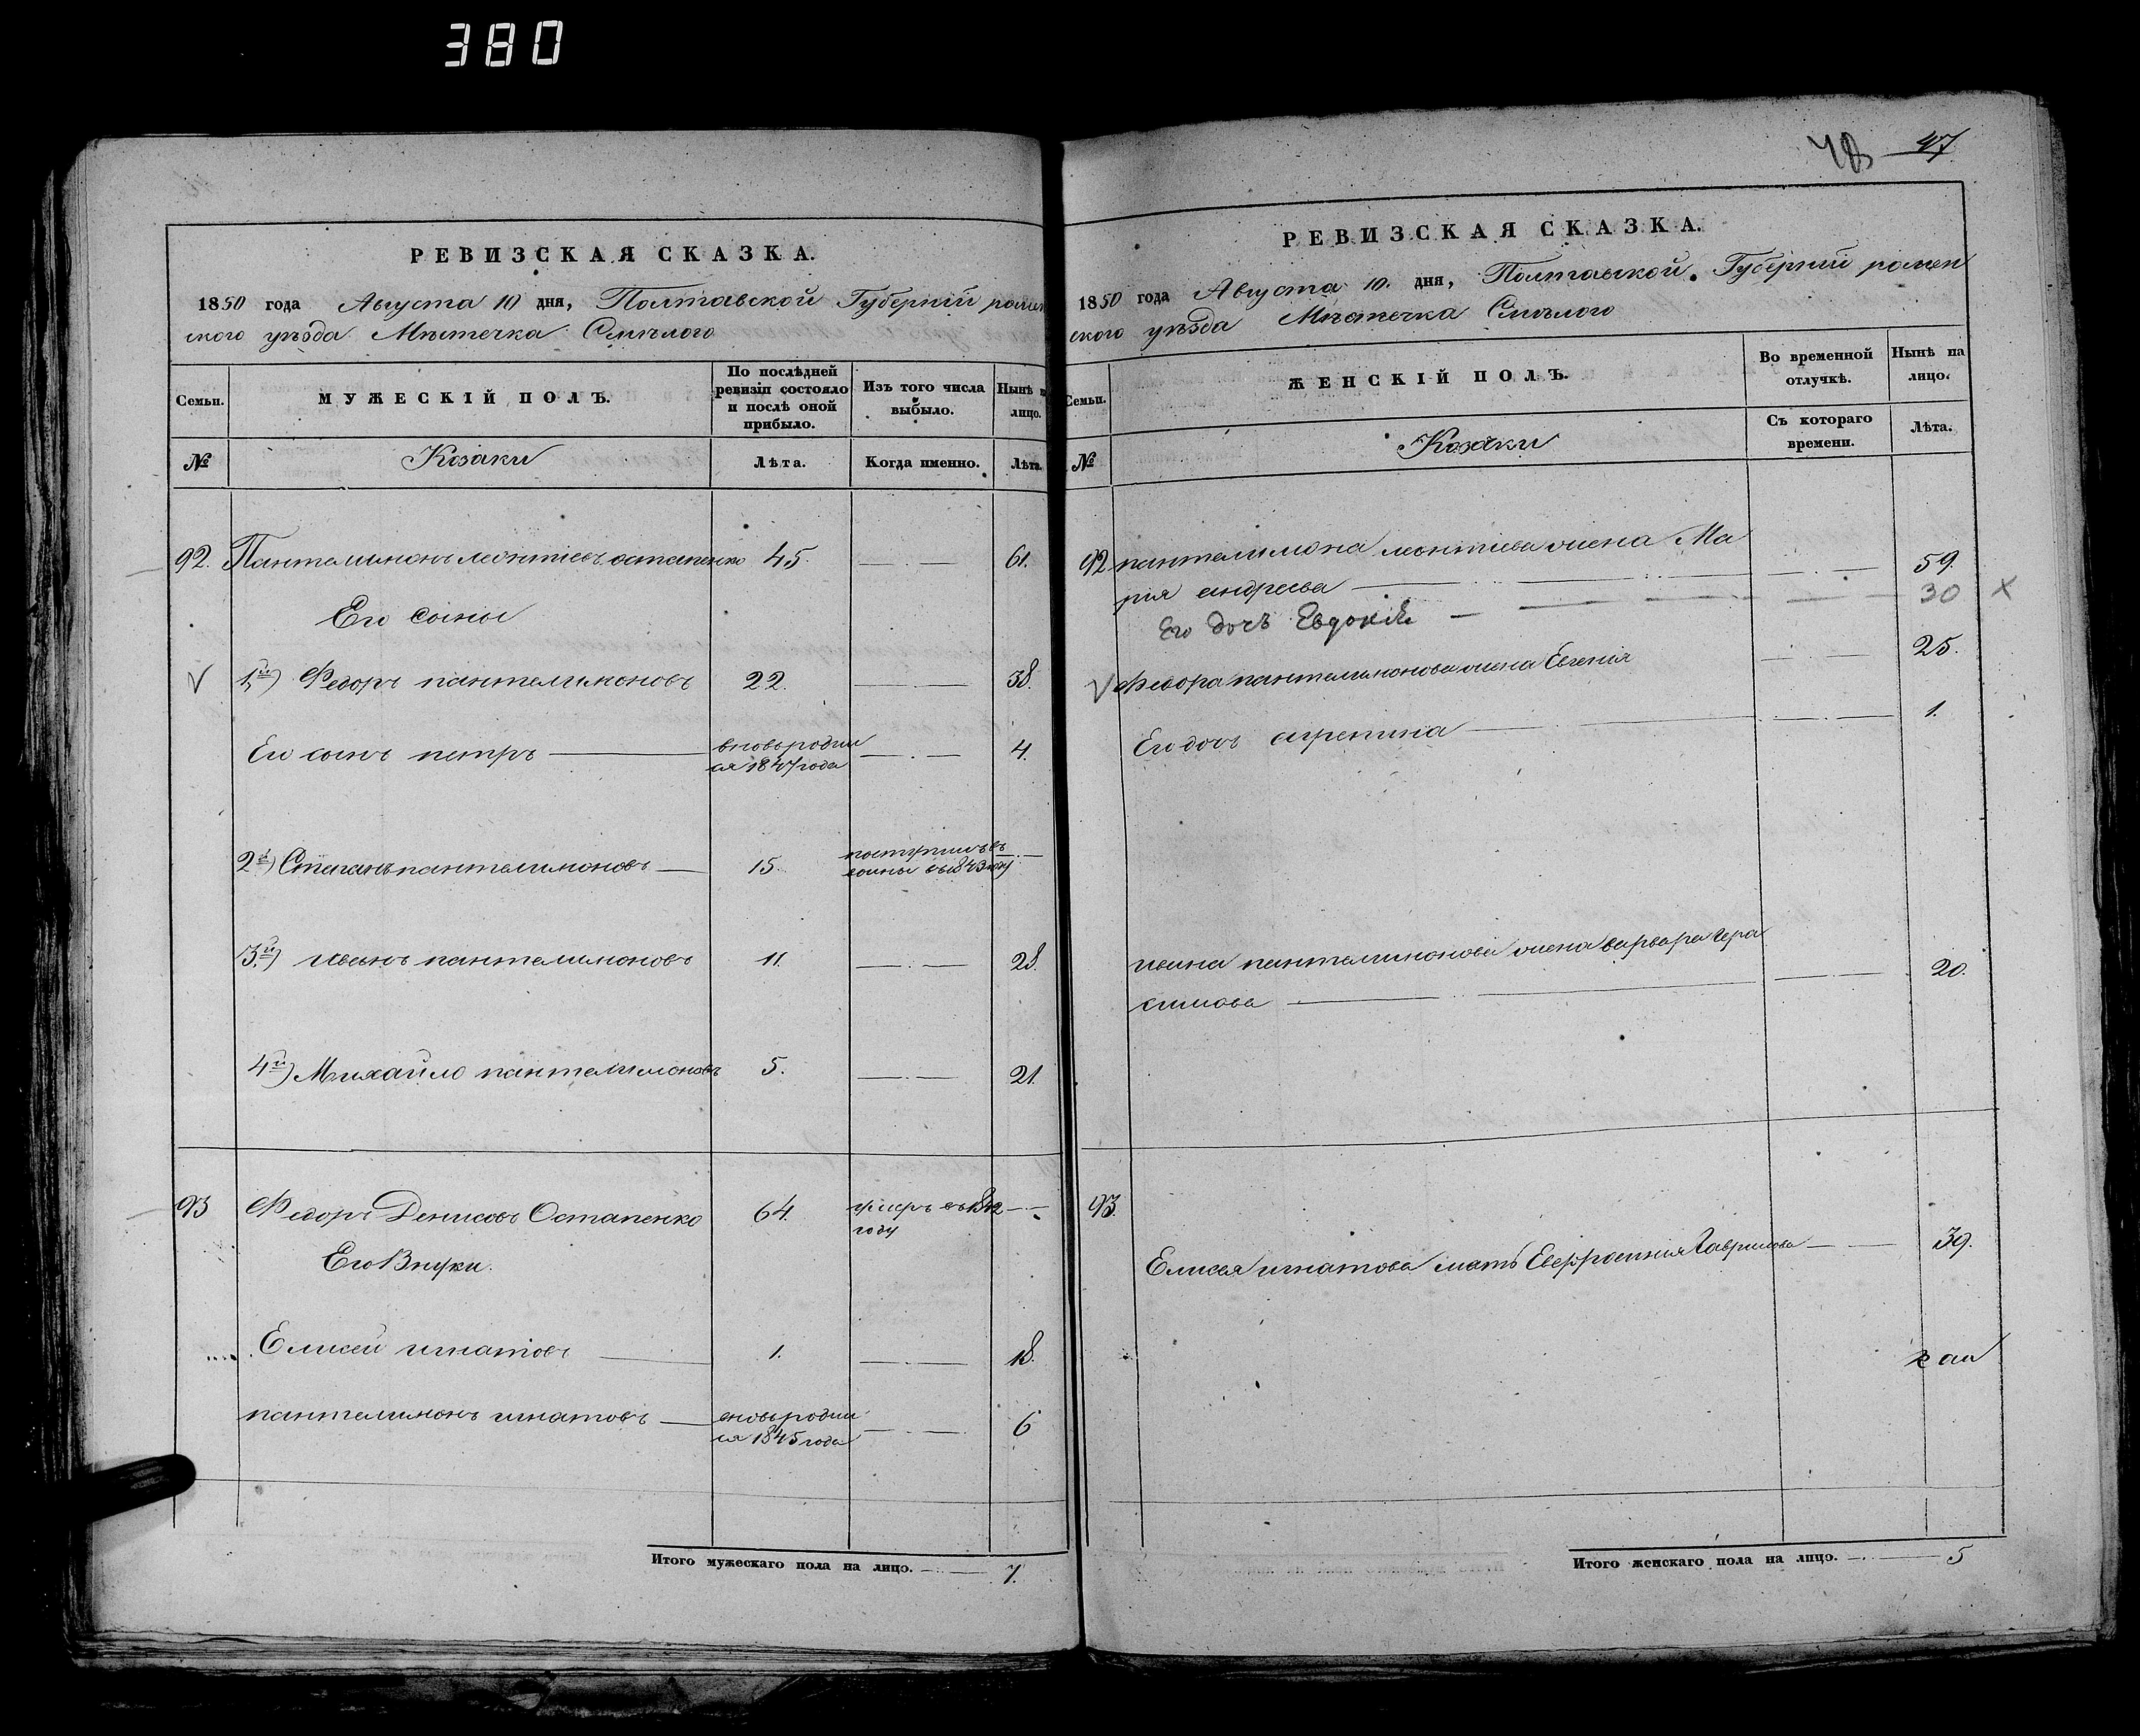 380
РЕВИЗСКАЯ СКАЗКА.
1850 года Августа 10 дня, Полтавской Губернии ромен
ского уѣзда Мѣстечка Смѣлого
Семьи.
МУЖЕСКІЙ ПОЛЪ.
По послѣдней ревизіи состояло и послѣ оной прибыло.
Изъ того числа выбыло.
Нынѣ на лицо.
№
Козаки
Лѣта.
Когда именно.
Лѣта.
92. Пантелимонъ леонтіевъ остапенко 45. 61.
Его сыны
V 1й) Федоръ пантелимоновъ 22. 38.
Его сынъ петръ вновь родил 4.
ся 1847 года
2й) Степанъ пантелимоновъ 15. поступилъ въ
воины въ 1843 году
3й) иванъ пантелимоновъ 11. 28.
4й) Михайло пантелимоновъ 5. 21.
93 Федоръ Денисовъ Остапенко 64. умеръ въ 1842
году
Его Внуки.
Елисей игнатовъ 1. 18.
пантелимонъ игнатовъ вновь родил 6
ся 1845 года
Итого мужескаго пола на лицо. 7.
48 47
РЕВИЗСКАЯ СКАЗКА.
1850 года Августа 10. дня, Полтавской Губернии ромен
ского уѣзда Мѣстечка Смѣлого
Семьи.
ЖЕНСКІЙ ПОЛЪ.
Во временной отлучкѣ.
Нынѣ на лицо.
№
Козаки
Съ котораго времени.
Лѣта.
92 пантелимона леонтіева жена Ма
рия андреева 59.
Его дочъ Евдокія 30 х
V Федора пантелимонова жена Евгенія 25.
Его дочь агрепина 1.
ивана пантелимонова жена варвара Гера
симова 20.
93.
Елисея игнатова мать Евфросиния Гаврилова 39.
Итого женскаго пола на лицо. 5